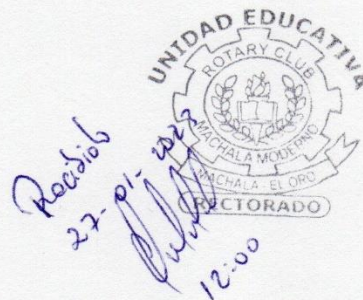 UNIDAD EDUCATIVA
ROTARY CLUB
MACHALA MODERNO
MACHALA - EL ORO
RECTORADO
Recibido
27-01-2023
12:00